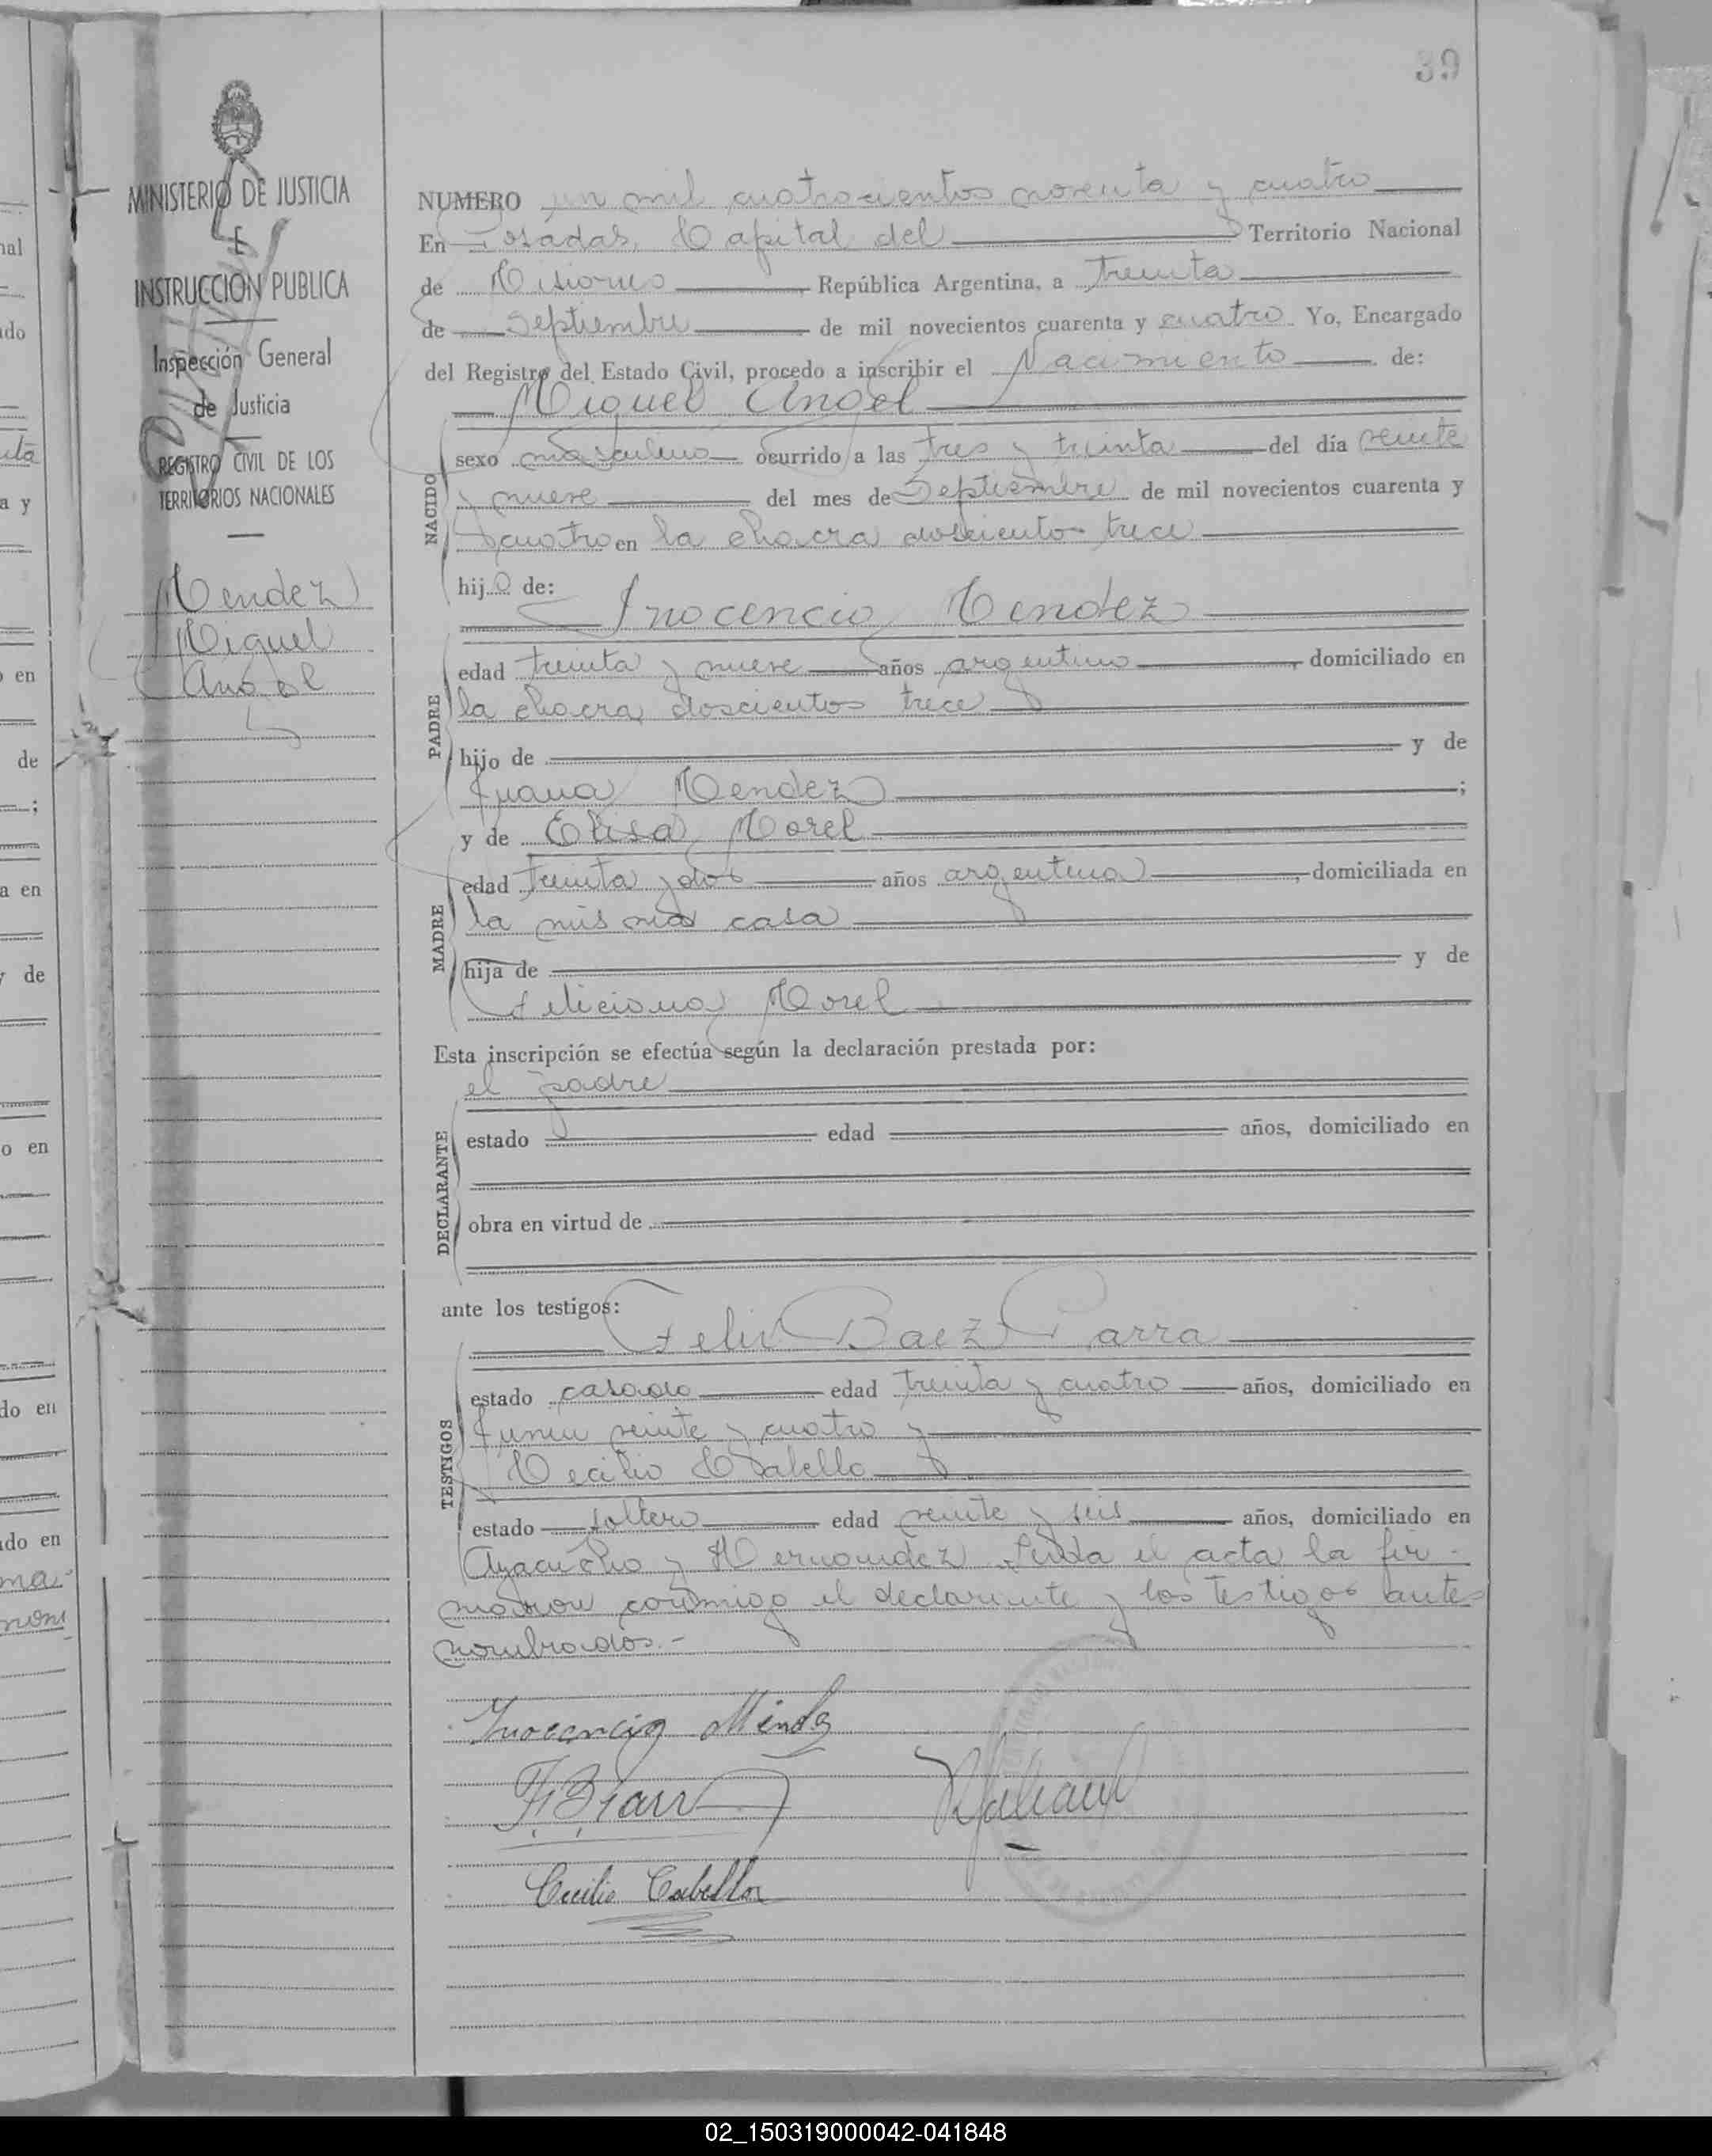 39
MINISTERIO DE JUSTICIA
E
INSTRUCCION PUBLICA
Inspección General
de Justicia
REGISTRO CIVIL DE LOS
TERRITORIOS NACIONALES
Mendez
Miguel
Angel
NUMERO un mil cuatrocientos noventa y cuatro
En Posadas, Capital del Territorio Nacional
de Misiones, República Argentina, a treinta
de Septiembre de mil novecientos cuarenta y cuatro. Yo, Encargado
del Registro del Estado Civil, procedo a inscribir el Nacimiento de:
Miguel Angel
NACIDO
sexo masculino ocurrido a las tres y treinta del día veinte
y nueve del mes de Septiembre de mil novecientos cuarenta y
cuatro en la chacra doscientos trece
hijo de:
Inocencio Mendez
PADRE
edad treinta y nueve años argentino, domiciliado en
la chacra doscientos trece
hijo de y de
Juana Mendez;
y de Elisa Morel
MADRE
edad treinta y dos años argentina, domiciliada en
la misma casa
hija de y de
Feliciana Morel
Esta inscripción se efectúa según la declaración prestada por:
el padre
DECLARANTE
estado edad años, domiciliado en
obra en virtud de
ante los testigos:
Felix Baez Parra
TESTIGOS
estado casado edad treinta y cuatro años, domiciliado en
Junin veinte y cuatro y
Cecilio Cabello
estado soltero edad veinte y seis años, domiciliado en
Ayacucho y Hernandez Leida el acta la fir-
maron conmigo el declarante y los testigos antes
nombrados.-
Inocencio Mendez
Cecilio Cabello
02_150319000042-041848